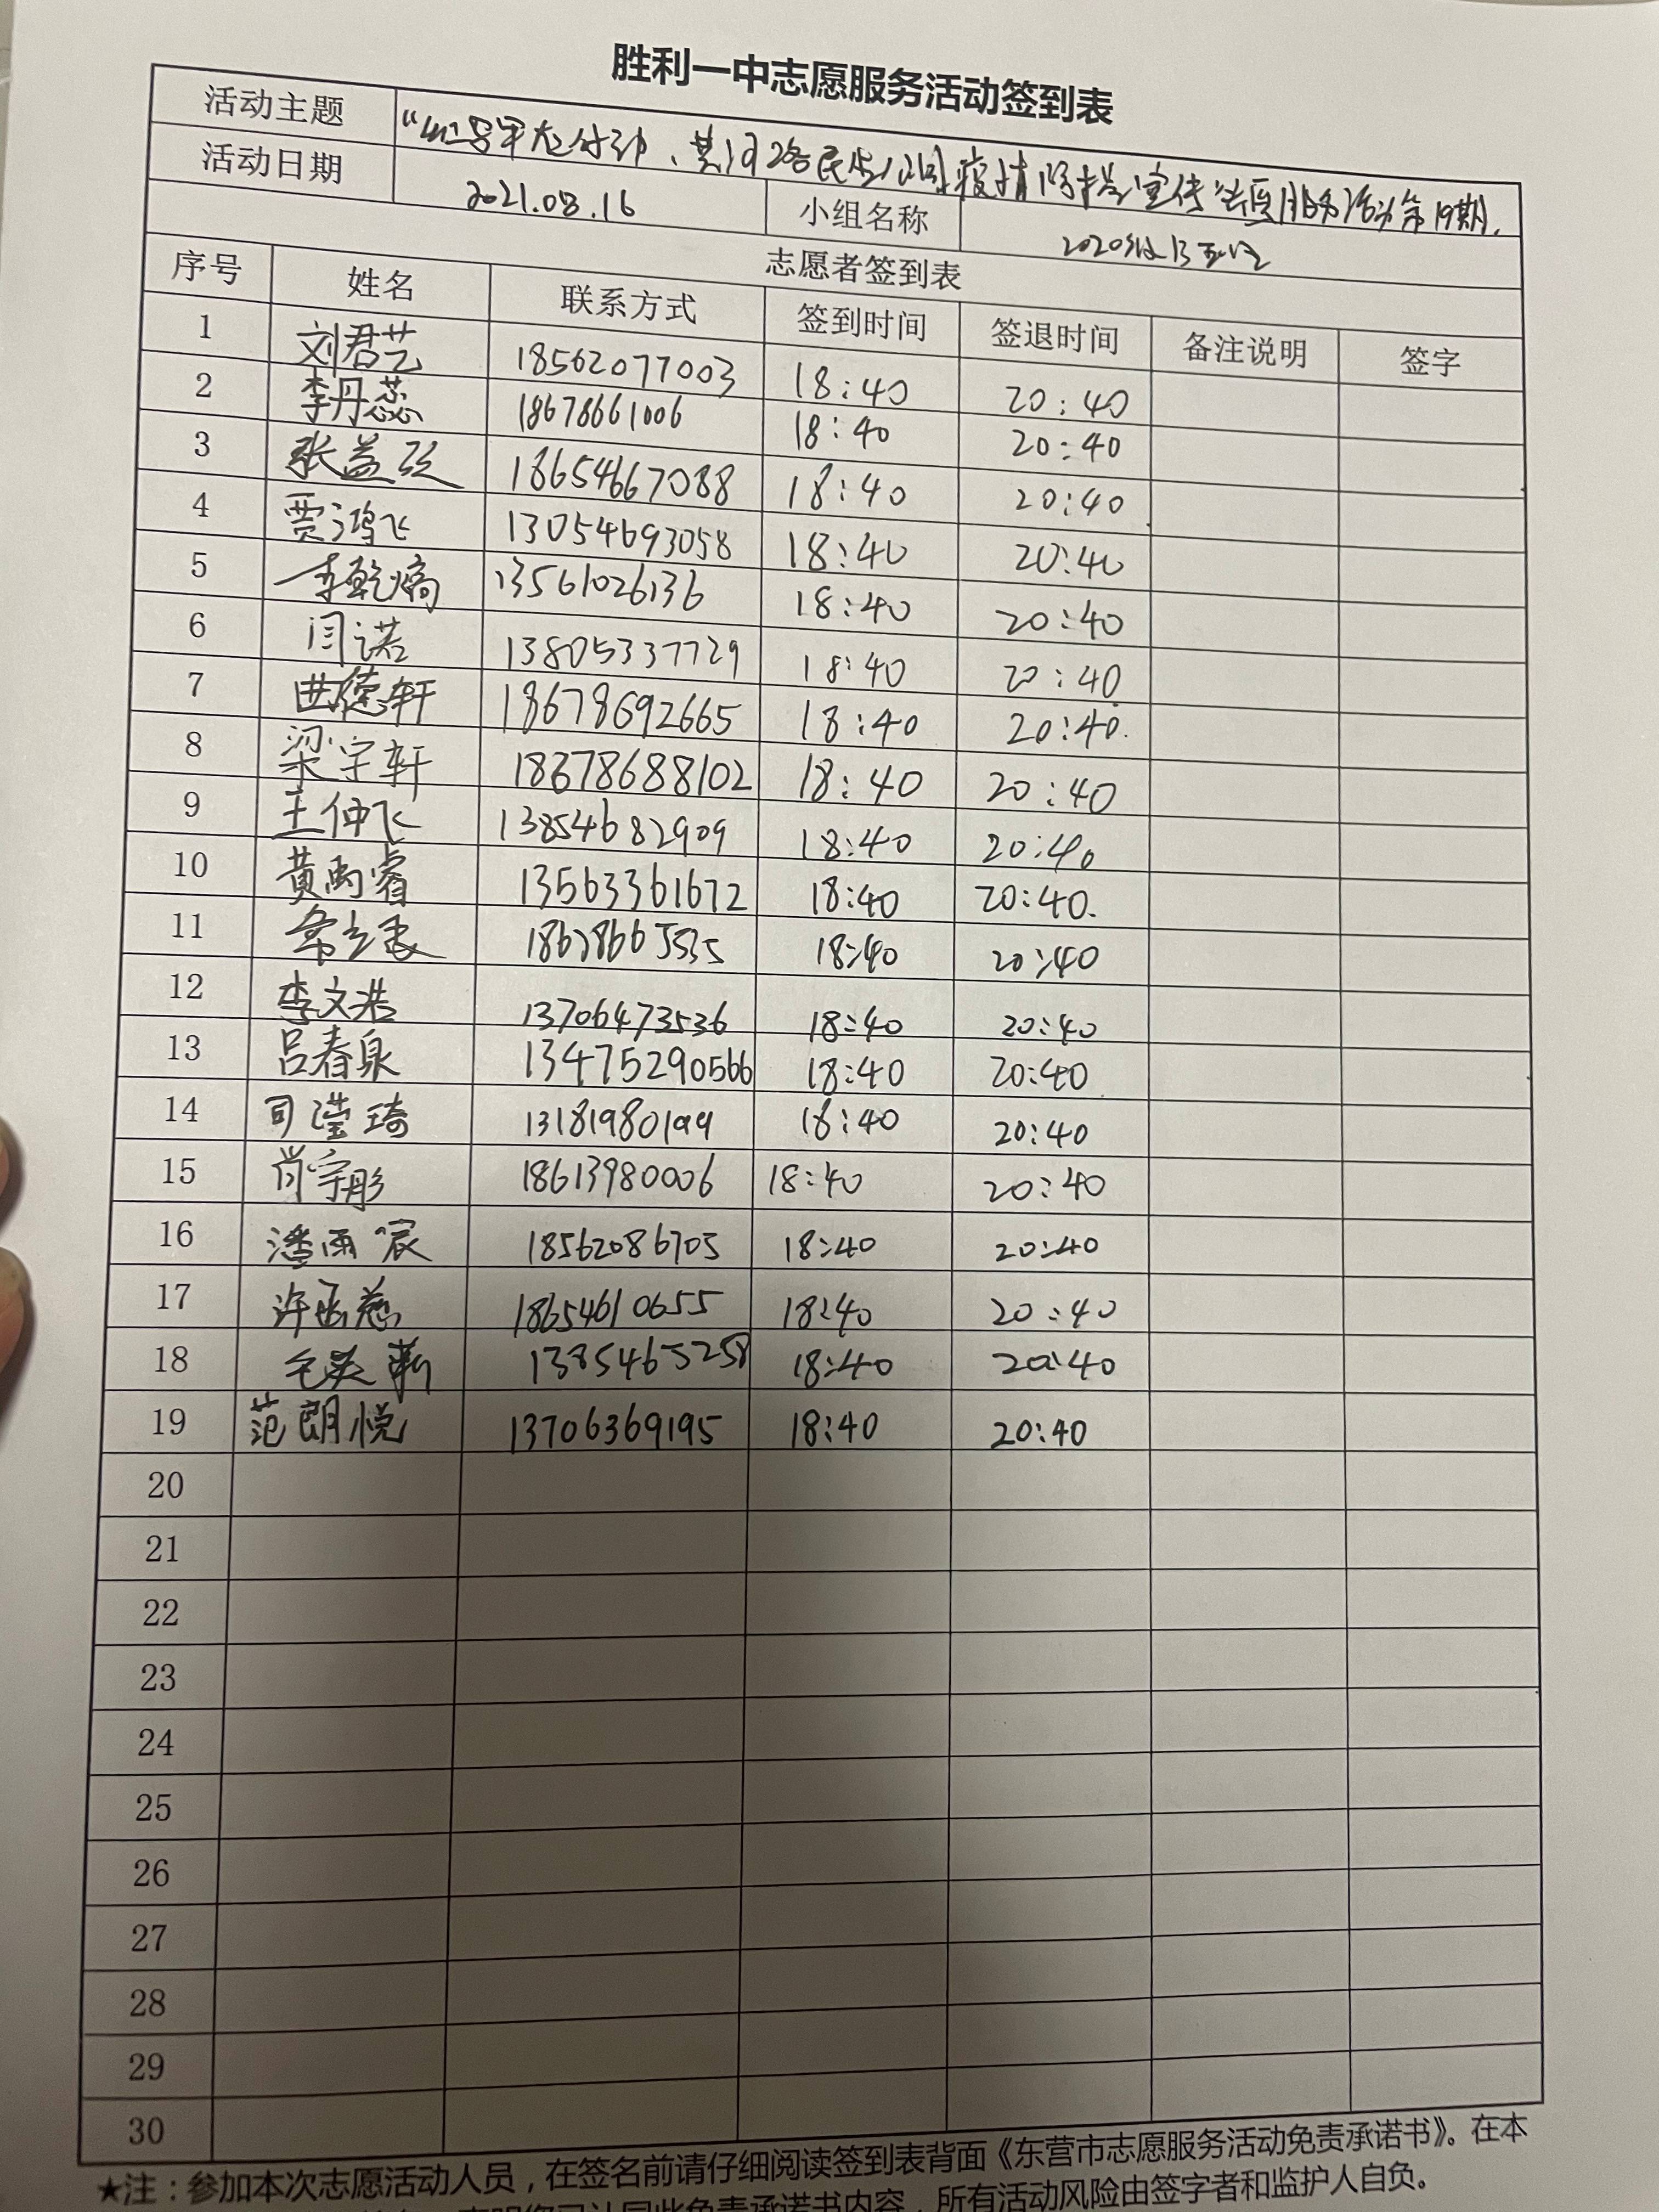 胜利一中志愿服务活动签到表
活动主题 疫情防控宣传志愿服务活动第19期.
活动日期 2021.08.16 小组名称 2020级13
志愿者签到表
序号 姓名 联系方式 签到时间 签退时间 备注说明 签字
1 刘君艺 18562077003 18:40 20:40
2 李丹蕊 18678661006 18:40 20:40
3 张益 18654667088 18:40 20:40
4 贾鸿飞 13054693058 18:40 20:40
5 李乾熵 13561026136 18:40 20:40
6 闫诺 13805337729 18:40 20:40
7 曲德轩 18678692665 18:40 20:40.
8 梁宇轩 18678688102 18:40 20:40
9 王仲飞 13854682909 18:40 20:40
10 黄禹睿 13563361672 18:40 20:40.
11 18:40 20:40
12 李文浩 13706473536 18:40 20:40
13 吕春泉 13475290566 18:40 20:40
14 司滢琦 13181980199 18:40 20:40
15 肖宇彤 18613980006 18:40 20:40
16 潘雨宸 18562086705 18:40 20:40
17 许函慈 18654610655 18:40 20:40
18 13854655258 18:40 20:40
19 范朗悦 13706369195 18:40 20:40
20
21
22
23
24
25
26
27
28
29
30
★注：参加本次志愿活动人员，在签名前请仔细阅读签到表背面《东营市志愿服务活动免责承诺书》。在本
声明您已认同此免责承诺书内容，所有活动风险由签字者和监护人自负。